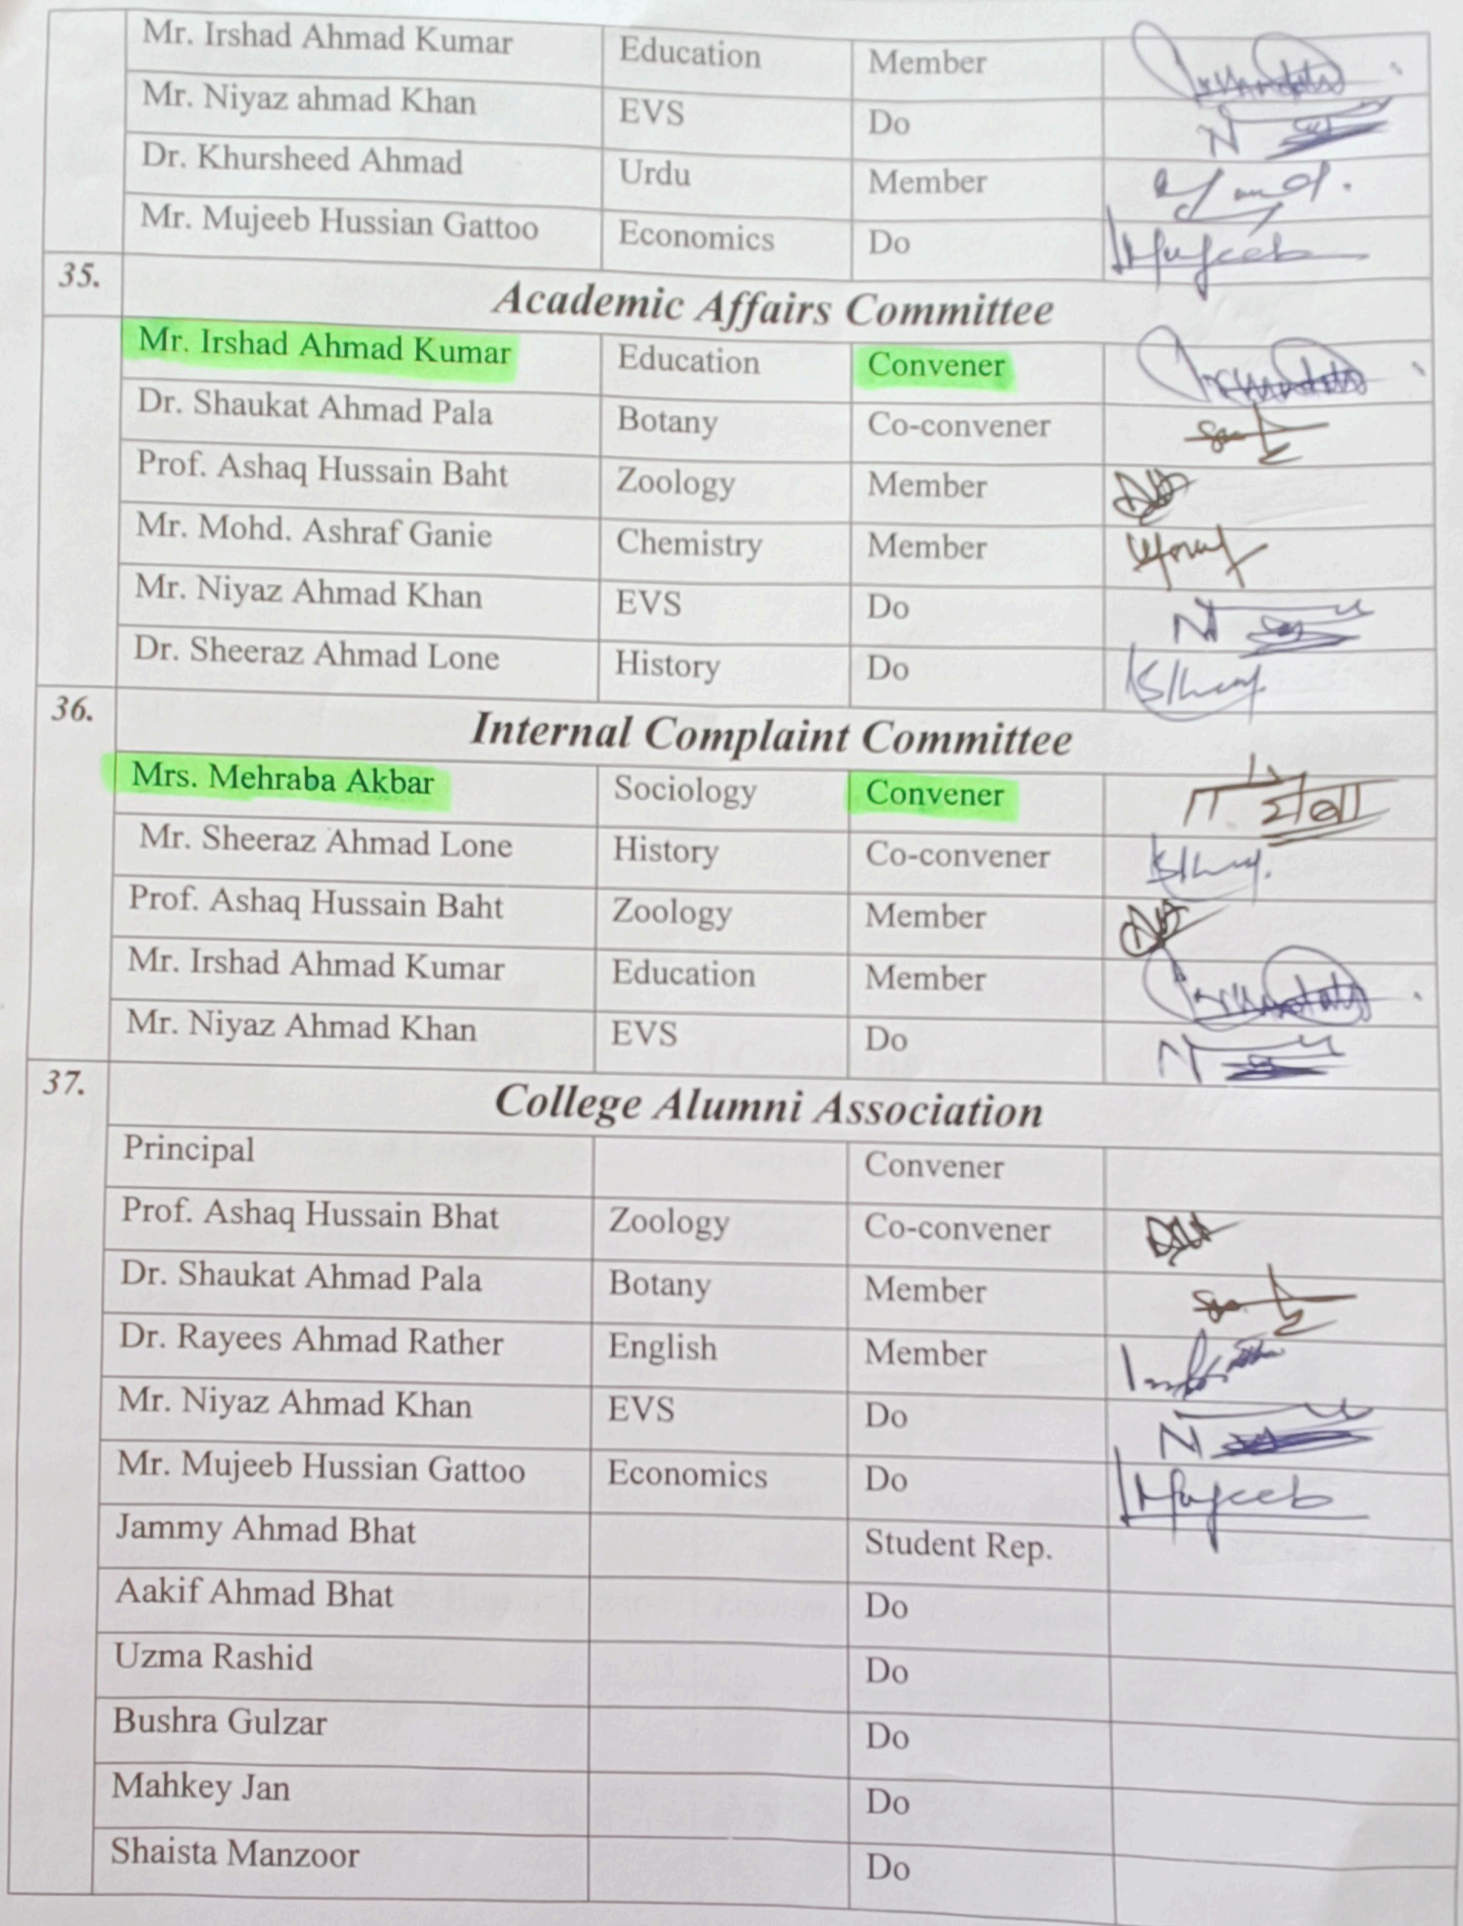 Mr. Irshad Ahmad Kumar Education Member
Mr. Niyaz ahmad Khan EVS Do
Dr. Khursheed Ahmad Urdu Member
Mr. Mujeeb Hussian Gattoo Economics Do Mujeeb
35. Academic Affairs Committee
Mr. Irshad Ahmad Kumar Education Convener
Dr. Shaukat Ahmad Pala Botany Co-convener
Prof. Ashaq Hussain Baht Zoology Member
Mr. Mohd. Ashraf Ganie Chemistry Member
Mr. Niyaz Ahmad Khan EVS Do
Dr. Sheeraz Ahmad Lone History Do
36. Internal Complaint Committee
Mrs. Mehraba Akbar Sociology Convener
Mr. Sheeraz Ahmad Lone History Co-convener
Prof. Ashaq Hussain Baht Zoology Member
Mr. Irshad Ahmad Kumar Education Member
Mr. Niyaz Ahmad Khan EVS Do
37. College Alumni Association
Principal Convener
Prof. Ashaq Hussain Bhat Zoology Co-convener
Dr. Shaukat Ahmad Pala Botany Member
Dr. Rayees Ahmad Rather English Member
Mr. Niyaz Ahmad Khan EVS Do
Mr. Mujeeb Hussian Gattoo Economics Do Mujeeb
Jammy Ahmad Bhat Student Rep.
Aakif Ahmad Bhat Do
Uzma Rashid Do
Bushra Gulzar Do
Mahkey Jan Do
Shaista Manzoor Do